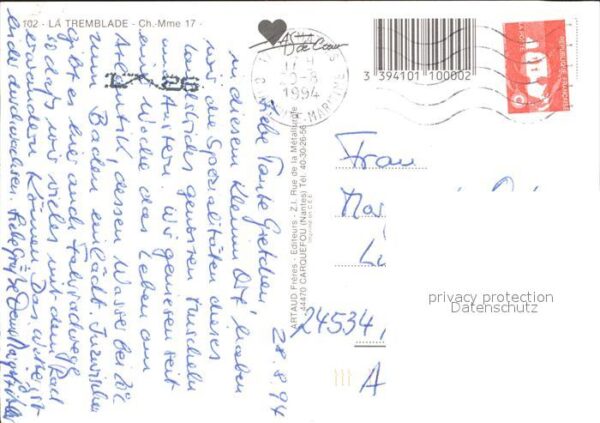 102 - LA TREMBLADE - Ch.-Mme 17 -
As de Cœur
3 394101 100002
1994
MARITIME
REPUBLIQUE FRANÇAISE
ARTAUD Frères - Editeurs - Z.I. Rue de la Métallurgie
44470 CARQUEFOU (Nantes) Tél. 40-30-26-56
Imprimé en C.E.E.
28.8.94
Liebe Tante Gretchen!
In diesem kleinen Ort haben
wir die Spezialitäten dieses
Landstriches genossen Muscheln
und Austern. Wir genießen seit
einer Woche das Leben am
Atlantik dessen Wasser bei
zum Baden einlädt. Inzwischen
gibt es hier auch Fahrradwege
sodaß wir vieles mit dem Rad
erkunden können. Das Wetter ist
leider durchwachsen. Liebe Grüße Deine
Frau
24534
A
privacy protection
Datenschutz